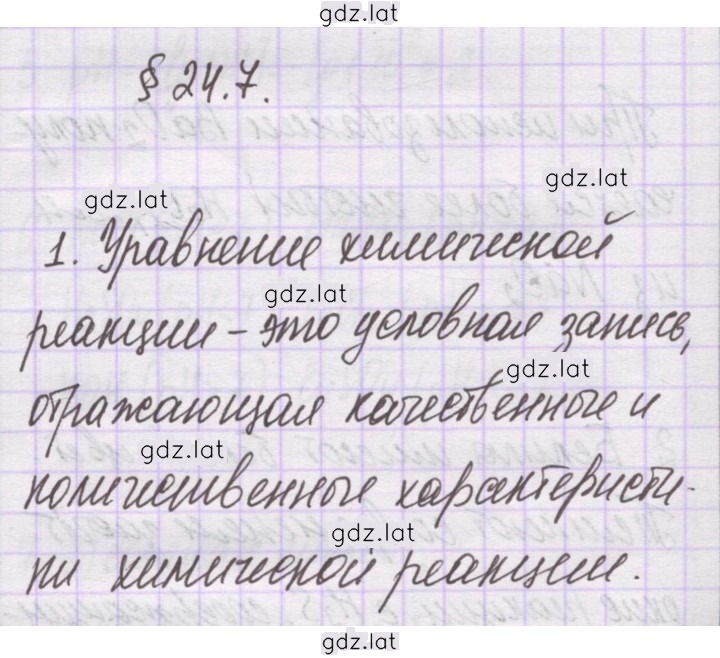 gdz.lat
§ 24.7.
gdz.lat
gdz.lat
1. Уравнение химической
gdz.lat
реакции – это условная запись,
gdz.lat
отражающая качественные и
gdz.lat
количественные характеристи-
gdz.lat
ки химической реакции.
gdz.lat